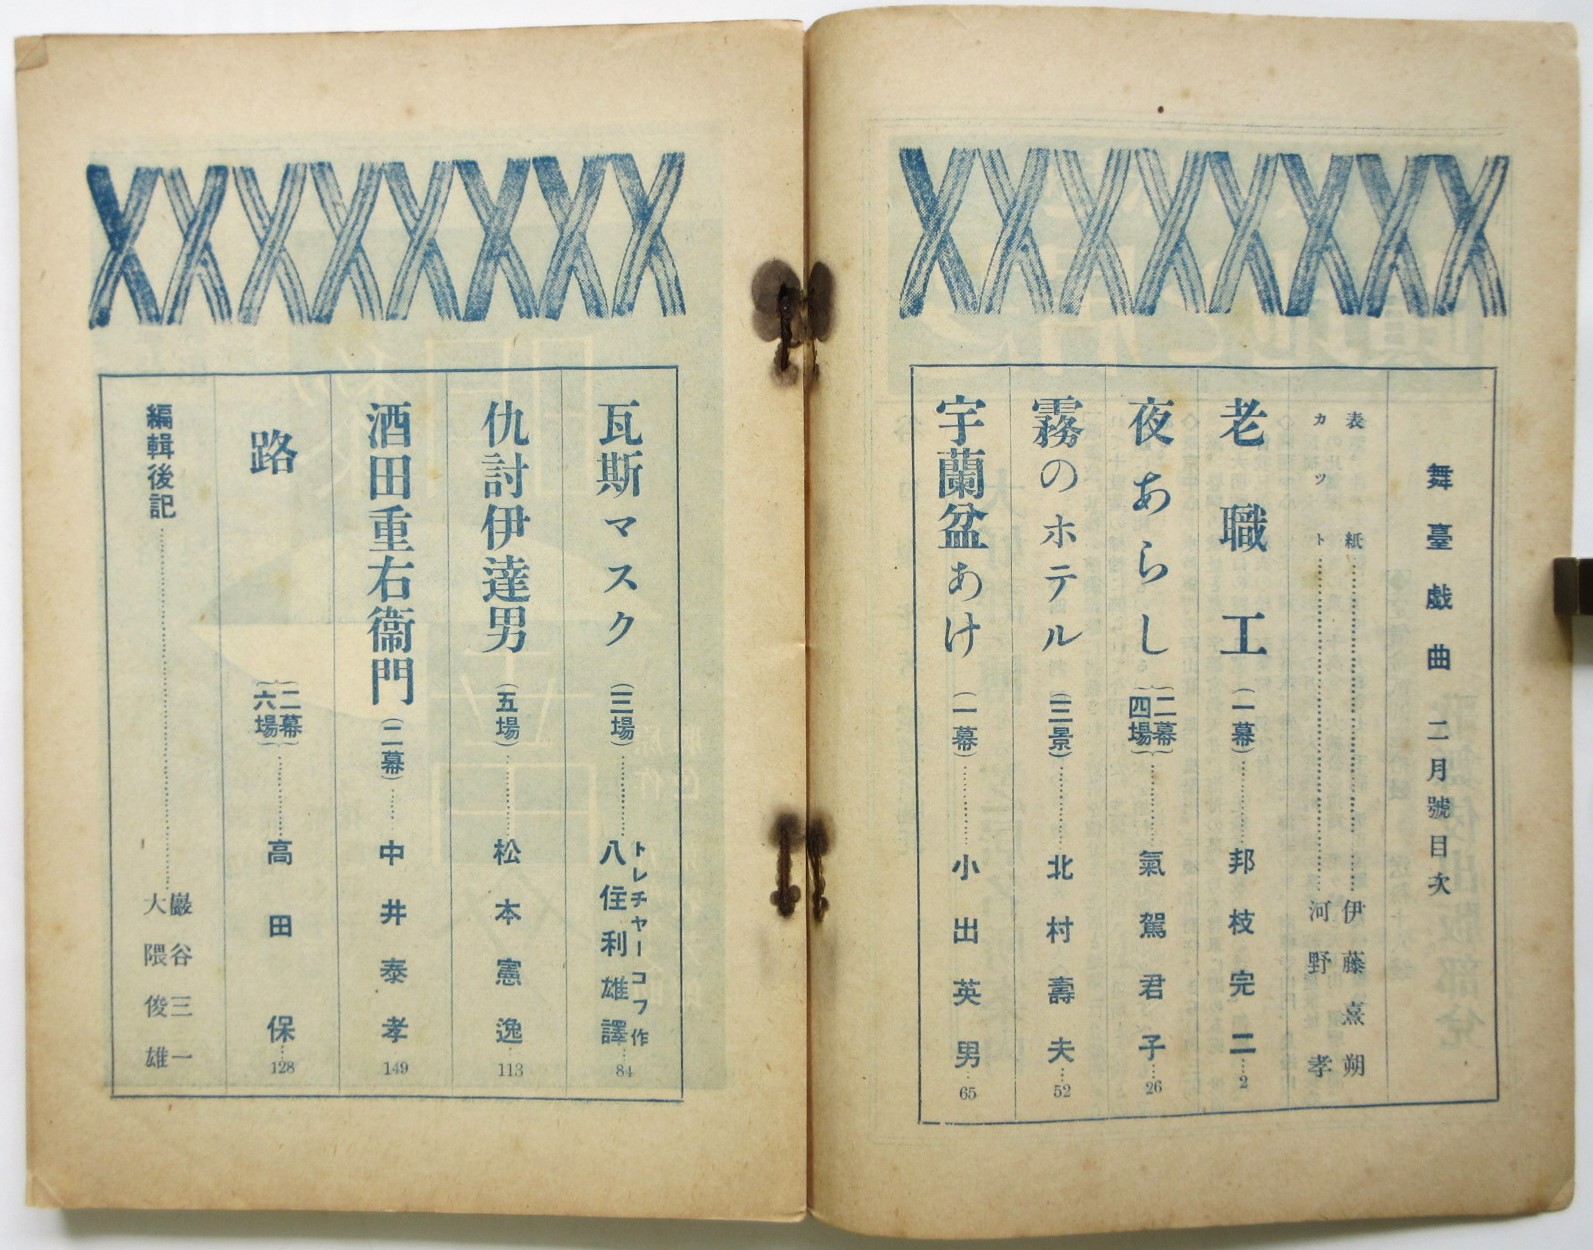 舞臺戯曲 二月號目次
表紙……伊藤熹朔
カット……河野孝
老職工(一幕)……邦枝完二…2
夜あらし(二幕四場)……氣駕君子…26
霧のホテル(三景)……北村壽夫…52
宇蘭盆あけ(一幕)……小出英男…65
瓦斯マスク(三場)……トレチヤーコフ作 八住利雄譯…84
仇討伊達男(五場)……松本憲逸…113
酒田重右衞門(二幕)……中井泰孝…149
路(二幕六場)……高田保…128
編輯後記……巖谷三一 大隈俊雄